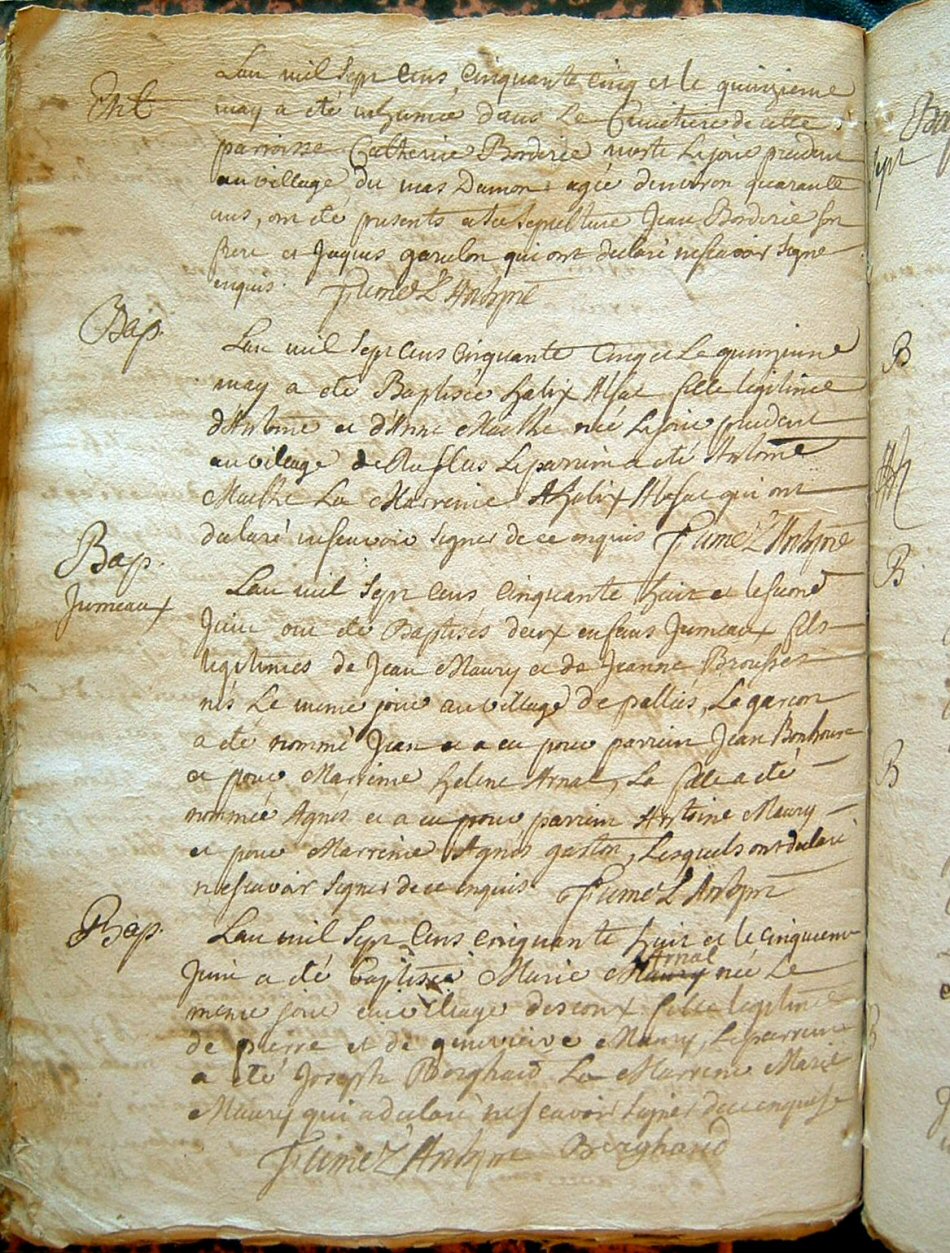 Ent
Lan mil Sept Cens Cinquante Cinq et le quinzieme
may a été inhumée dans Le Cimetiere de cette
parroisse Catherine Borderie morte Le jour precedent
au village du mas Damon agée denviron quarante
ans, ont été presents a sa sepulture Jean Borderie son
frere et Jaques qui ont declaré ne scavoir signe
enquis. Fumel
Bap.
Lan mil Sept Cens Cinquante Cinq et Le quinzieme
may a été Baptisée helix Alsac fille legitime
d'Antoine et d'Anne Mathe née Le jour precedent
au village de Le parrin a été Antoine
Mathe La Marreine helix Alsac qui ont
declaré ne scavoir signer de ce enquis Fumel
Bap.
Jumeaux
Lan mil Sept Cens Cinquante huit et le second
Juin ont été Baptisés deux enfans Jumeaux fils
legitimes de Jean Maury et de Jeanne Brousses
nés Le meme jour au village de pallies, Le garcon
a été nommé Jean et a eu pour parrein Jean Bonhoure
et pour Marreine helene Arnal, La fille a été
nommée Agnés et a eu pour parrein Antoine Maury
et pour Marreine Agnés gaston, Lesquels ont declaré
ne scavoir signer de ce enquis Fumel
Bap.
Lan mil Sept Cens Cinquante huit et le cinquieme
Arnal
Juin a été baptisée Marie Maury née Le
meme jour au village fille legitime
de pierre et de genevieve Maury, Le parrein
a été Joseph Borghaud La Marreine Marie
Maury qui a declaré ne scavoir signer de ce enquise
Fumel Borghaud
B
B
B